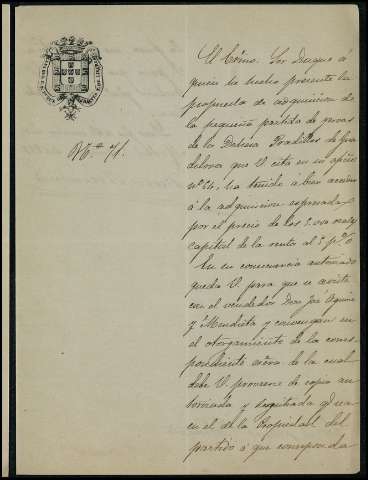 N.º 71.
El Excmo. Sor Duque á
quien he hecho presente la
propuesta de adquisicion de
la pequeña partida de yervas
de la Dehesa Pradillos de
que V cita en su oficio
nº 64, ha tenido á bien acceder
á la adquisicion espresada
por el precio de los
capital de la renta al 5 p%
En su consecuencia autorizado
queda V. para que se aviste
con el vendedor Don José Aguirre
y Mendieta y convengan en
el otorgamiento de la corres-
pondiente escra. de la cual
debe V. proveerse de copia au-
torizada y registrada q. sea
en el de la Propiedad del
partido á que corresponda